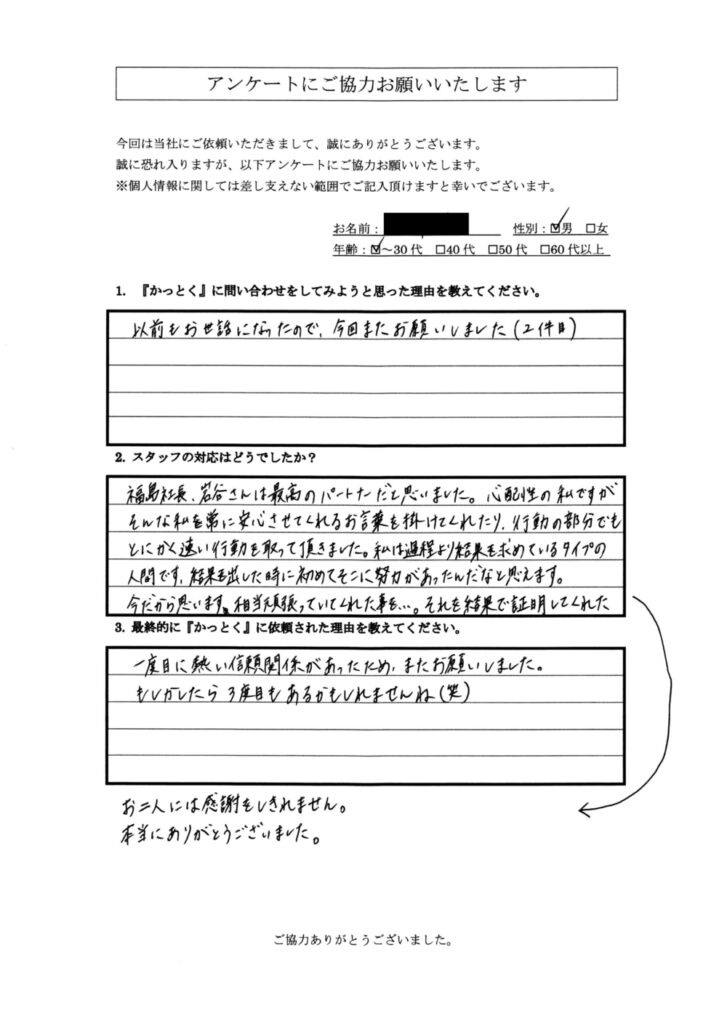 アンケートにご協力お願いいたします
今回は当社にご依頼いただきまして、誠にありがとうございます。
誠に恐れ入りますが、以下アンケートにご協力お願いいたします。
※個人情報に関しては差し支えない範囲でご記入頂けますと幸いでございます。
お名前： 性別：☑男 □女
年齢：☑～30代 □40代 □50代 □60代以上
1. 『かっとく』に問い合わせをしてみようと思った理由を教えてください。
以前もお世話になったので、今回またお願いしました(2件目)
2. スタッフの対応はどうでしたか？
福島社長、岩谷さんは最高のパートナーだと思いました。心配性の私ですが
そんな私を常に安心させてくれるお言葉を掛けてくれたり、行動の部分でも
とにかく速い行動を取って頂きました。私は過程より結果を求めているタイプの
人間です、結果を出した時に初めてそこに努力があったんだなと思えます。
今だから思います。相当頑張っていてくれた事を…。それを結果で証明してくれた
3. 最終的に『かっとく』に依頼された理由を教えてください。
一度目に熱い信頼関係があったため、またお願いしました。
もしかしたら3度目もあるかもしれませんね(笑)
お二人には感謝をしきれません。
本当にありがとうございました。
ご協力ありがとうございました。